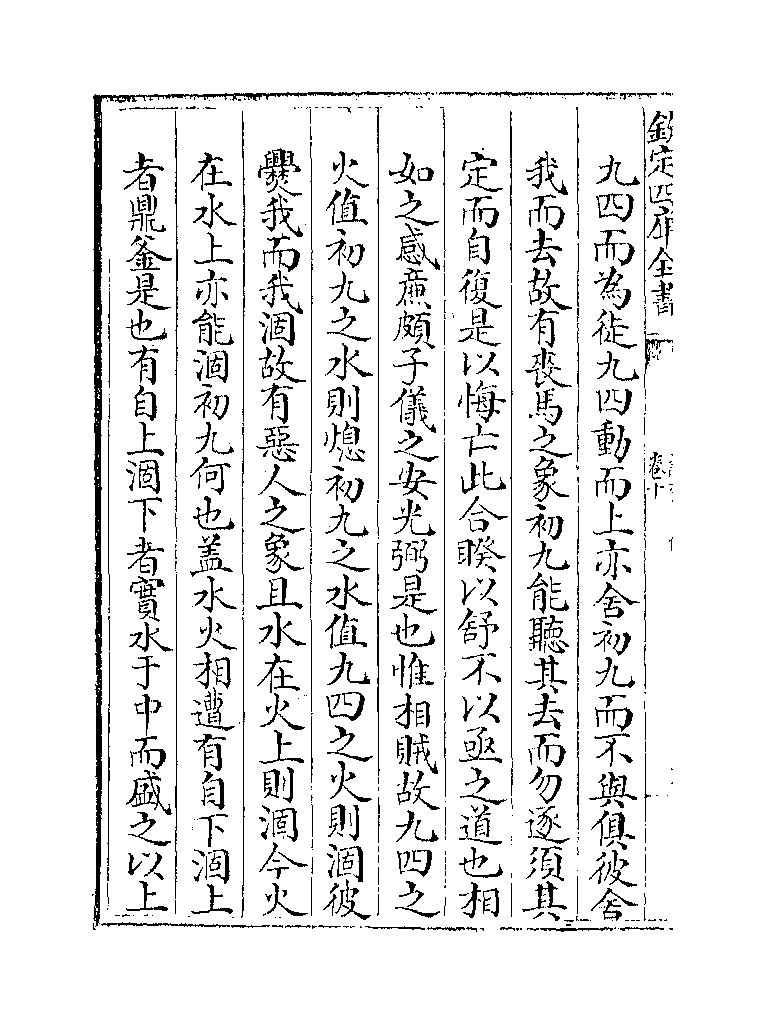 欽定四庫全書
卷十
九四而為徒九四動而上亦舍初九而不與俱彼舍
我而去故有喪馬之象初九能聽其去而勿逐須其
定而自復是以悔亡此合睽以舒不以亟之道也相
如之感廉頗子儀之安光弼是也惟相賊故九四之
火值初九之水則熄初九之水值九四之火則涸彼
爨我而我涸故有惡人之象且水在火上則涸今火
在水上亦能涸初九何也盖水火相遭有自下涸上
者鼎釜是也有自上涸下者實水于中而盛之以上